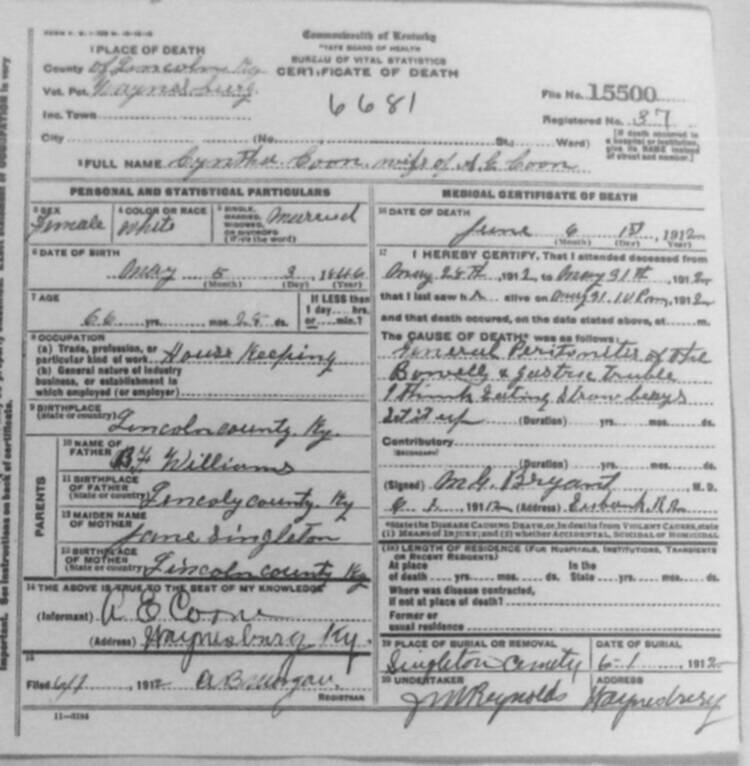 Commonwealth of Kentucky
STATE BOARD OF HEALTH
BUREAU OF VITAL STATISTICS
CERTIFICATE OF DEATH
1 PLACE OF DEATH
County of Lincoln Ky
Vot. Pct. Waynesburg
Inc. Town
City (No. St.; Ward)
6681
File No. 15500
Registered No. 37
[If death occurred in a hospital or institution, give its NAME instead of street and number.]
2 FULL NAME Cyntha Coon wife of A G Coon
PERSONAL AND STATISTICAL PARTICULARS
3 SEX
Female
4 COLOR OR RACE
White
5 SINGLE, MARRIED, WIDOWED, OR DIVORCED (Write the word)
Married
6 DATE OF BIRTH
May 5 3 1846
(Month) (Day) (Year)
7 AGE
66 yrs. mos. 28 ds.
If LESS than 1 day hrs. or min.?
8 OCCUPATION
(a) Trade, profession, or particular kind of work House Keeping
(b) General nature of industry business, or establishment in which employed (or employer)
9 BIRTHPLACE
(State or country) Lincoln county Ky.
PARENTS
10 NAME OF FATHER BF Williams
11 BIRTHPLACE OF FATHER (State or country) Lincoln county. Ky
12 MAIDEN NAME OF MOTHER Jane Singleton
13 BIRTHPLACE OF MOTHER (State or country) Lincoln county Ky
14 THE ABOVE IS TRUE TO THE BEST OF MY KNOWLEDGE
(Informant) A E Coon
(Address) Waynesburg Ky.
15
Filed 6/1, 1912 A B Morgan
REGISTRAR
11-3184
MEDICAL CERTIFICATE OF DEATH
16 DATE OF DEATH
June 6 1st, 1912
(Month) (Day) (Year)
17 I HEREBY CERTIFY, That I attended deceased from
May 28th, 1912, to May 31th, 1912
that I last saw h alive on May 31. 10 Pm, 1912
and that death occured, on the date stated above, at m.
The CAUSE OF DEATH* was as follows:
General Peritonites of the
Bowells & gastric truble
I think Eating Straw berys
Set it up (Duration) yrs. mos. ds.
Contributory
(SECONDARY)
(Duration) yrs. mos. ds.
(Signed) M.G. Bryant M. D.
6 1, 1912 (Address) Eubank
*State the DISEASE CAUSING DEATH, or, in deaths from VIOLENT CAUSES, state
(1) MEANS OF INJURY; and (2) whether ACCIDENTAL, SUICIDAL or HOMICIDAL
(18) LENGTH OF RESIDENCE (FOR HOSPITALS, INSTITUTIONS, TRANSIENTS
OR RECENT RESIDENTS)
At place of death yrs. mos. ds. In the State yrs. mos. ds.
Where was disease contracted,
if not at place of death?
Former or
usual residence
19 PLACE OF BURIAL OR REMOVAL
Singleton Cemety
DATE OF BURIAL
6-1, 1912
20 UNDERTAKER
J M Reynolds
ADDRESS
Waynesburg
Important. See instructions on back of certificate.